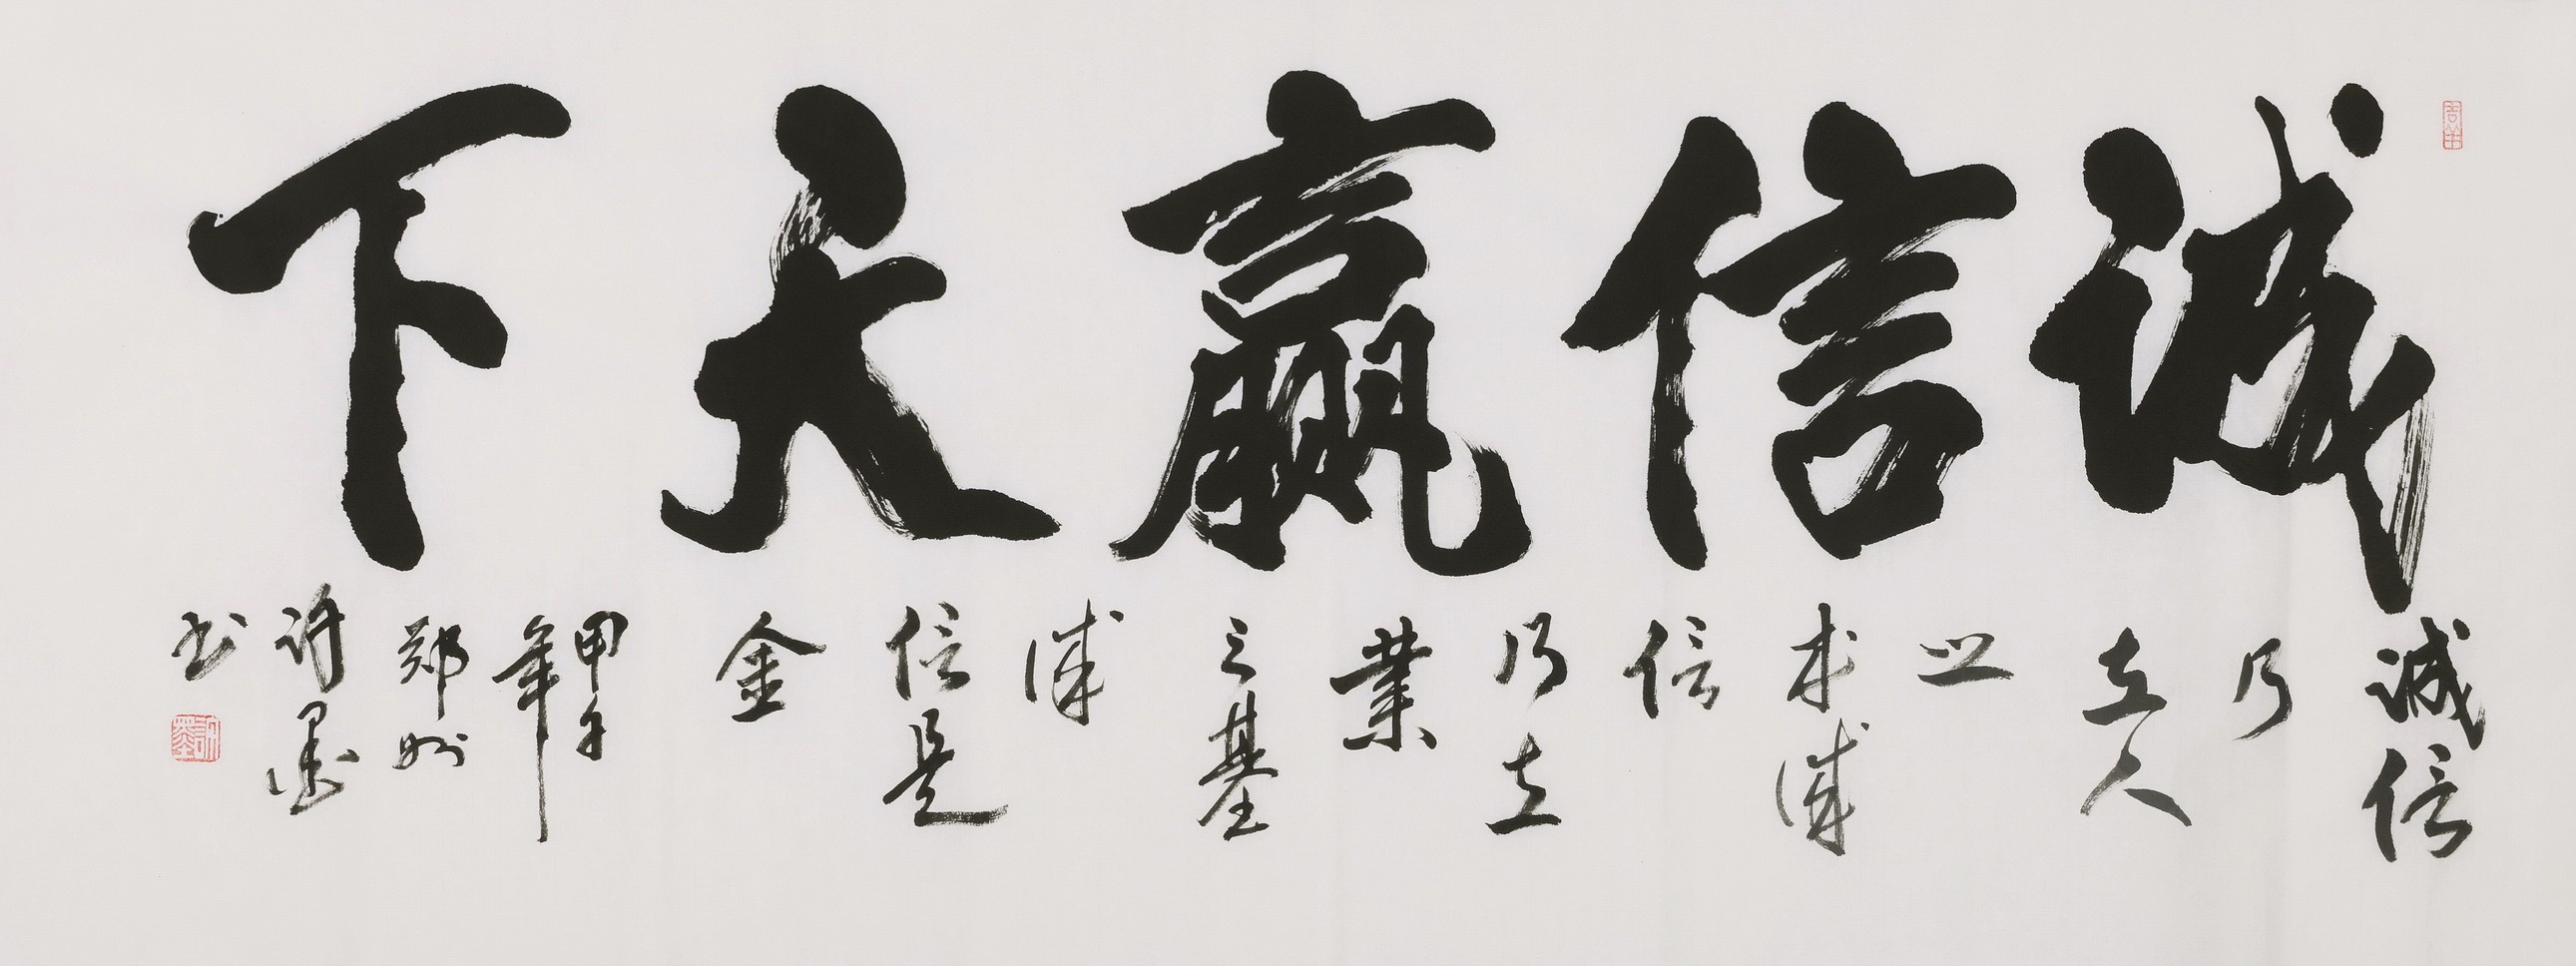 诚信赢天下
诚信
乃
立人
之
本诚
信
乃立
業
之基
诚
信是
金
甲午
年
郑州
许墨
书